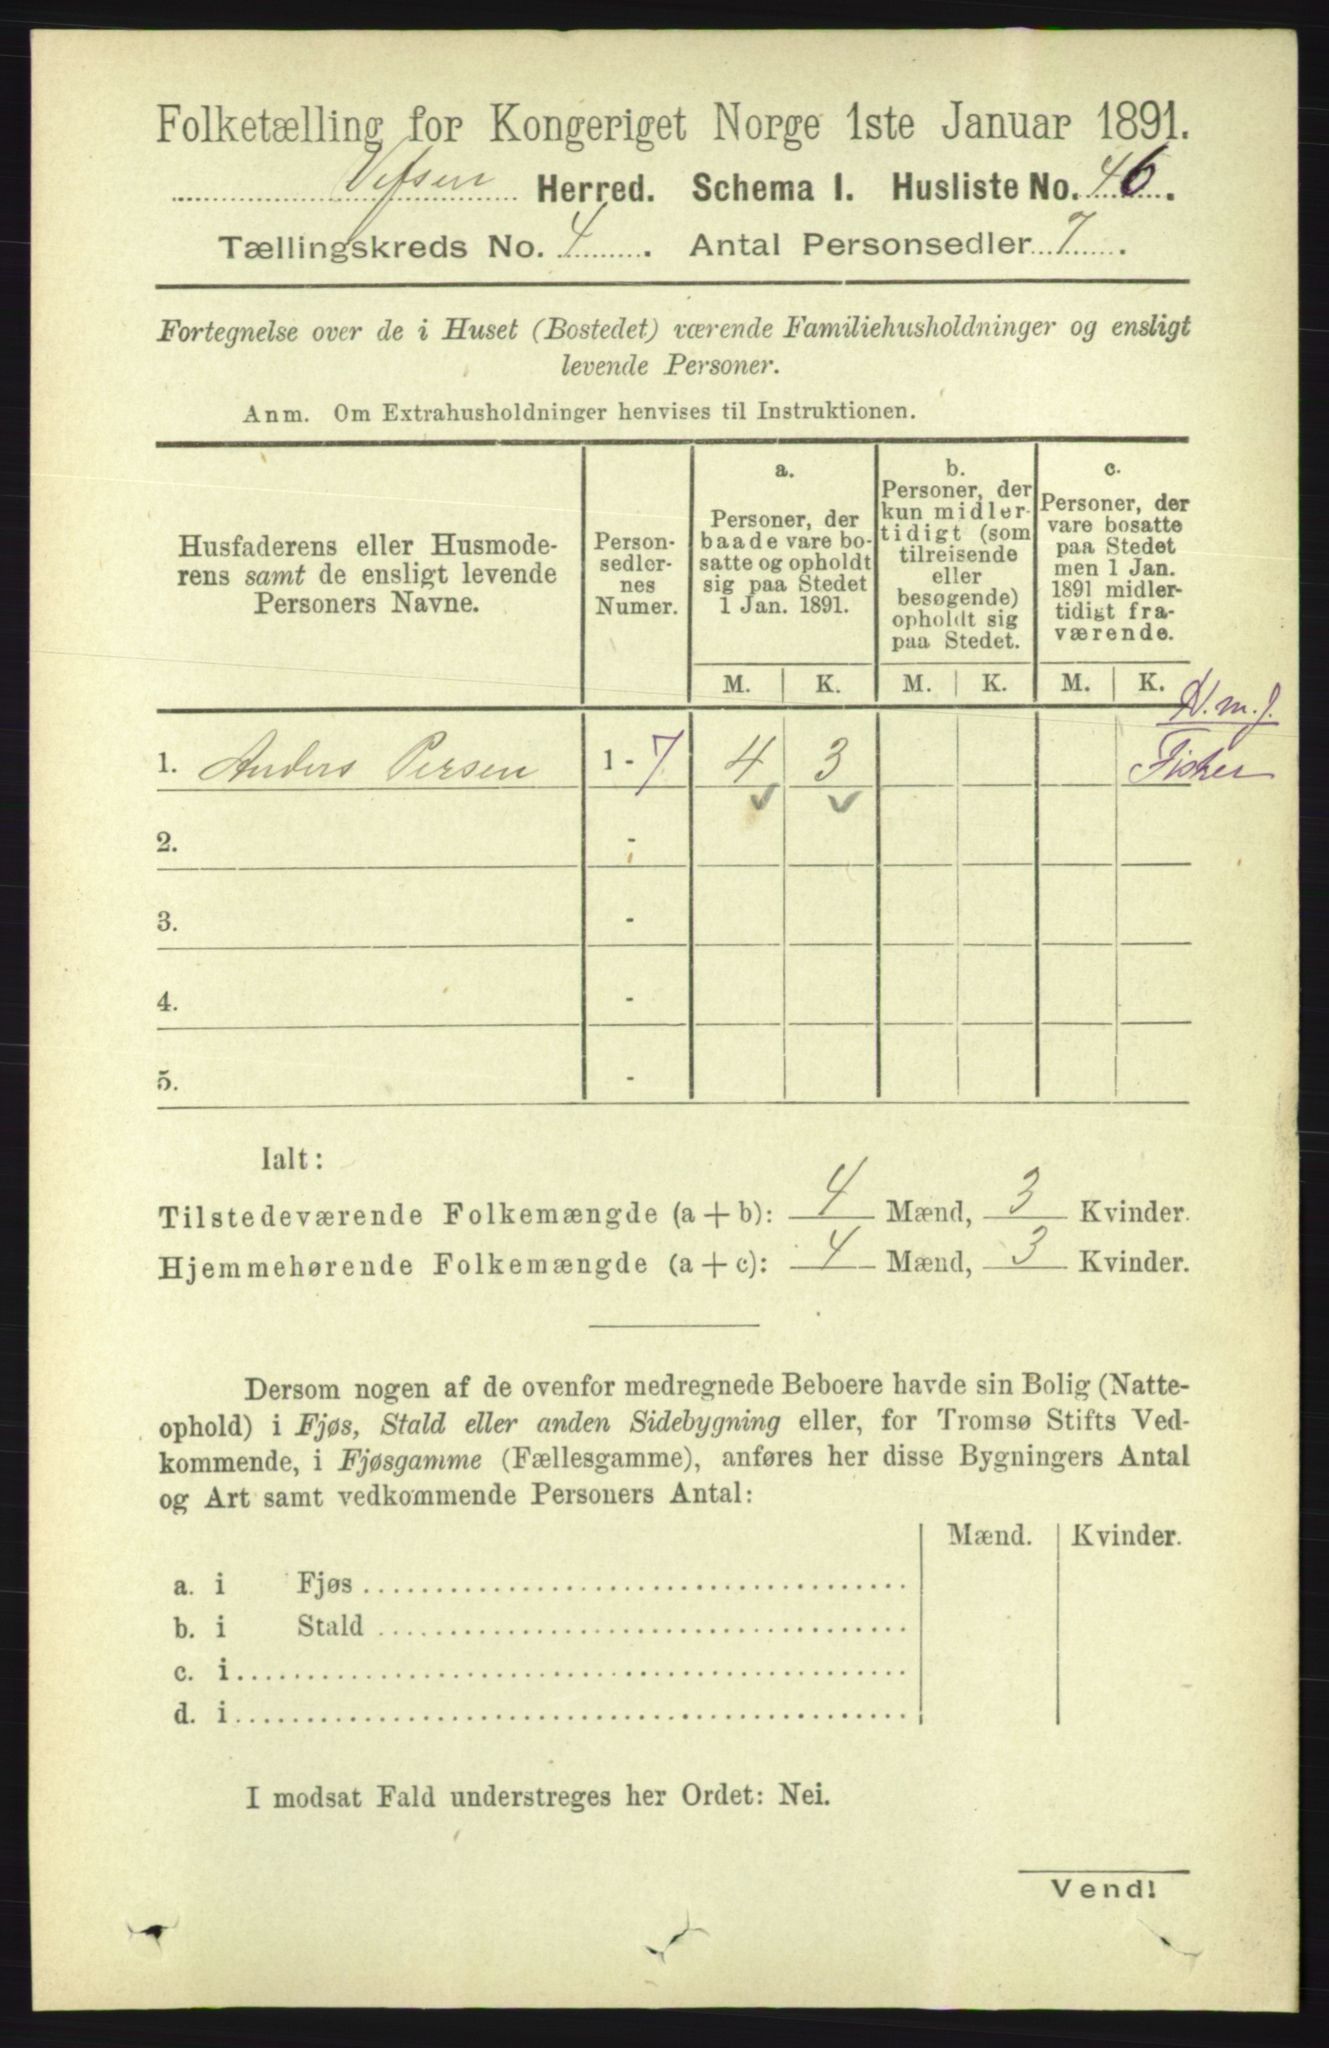 Folketælling for Kongeriget Norge 1ste Januar 1891.
Vefsen Herred. Schema I. Husliste No. 46.
Tællingskreds No. 4. Antal Personsedler 7.
Fortegnelse over de i Huset (Bostedet) værende Familiehusholdninger og ensligt
levende Personer.
Anm. Om Extrahusholdninger henvises til Instruktionen.
Husfaderens eller Husmode-
rens samt de ensligt levende
Personers Navne.
Person-
sedler-
nes
Numer.
a.
Personer, der
baade vare bo-
satte og opholdt
sig paa Stedet
1 Jan. 1891.
b.
Personer, der
kun midler-
tidigt (som
tilreisende
eller
besøgende)
opholdt sig
paa Stedet.
c.
Personer, der
vare bosatte
paa Stedet
men 1 Jan.
1891 midler-
tidigt fra-
værende.
M. K. M. K. M. K.
N. m. j.
1. Anders Persen 1 - 7 4 3 Fisker
2. -
3. -
4. -
5. -
Ialt:
Tilstedeværende Folkemængde (a + b): 4 Mænd, 3 Kvinder.
Hjemmehørende Folkemængde (a + c): 4 Mænd, 3 Kvinder.
Dersom nogen af de ovenfor medregnede Beboere havde sin Bolig (Natte-
ophold) i Fjøs, Stald eller anden Sidebygning eller, for Tromsø Stifts Ved-
kommende, i Fjøsgamme (Fællesgamme), anføres her disse Bygningers Antal
og Art samt vedkommende Personers Antal:
Mænd. Kvinder.
a. i Fjøs
b. i Stald
c. i
d. i
I modsat Fald understreges her Ordet: Nei.
Vend!